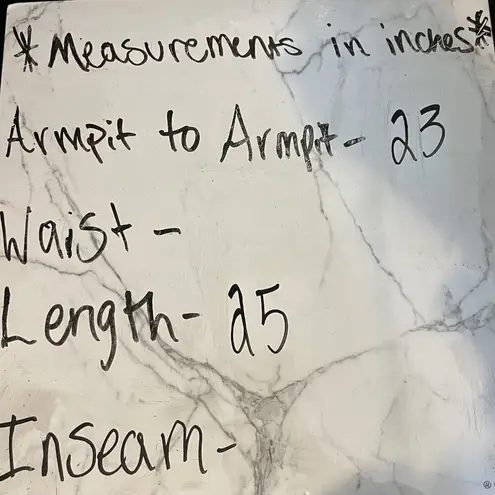 *Measurements in inches*
Armpit to Armpit- 23
Waist -
Length- 25
Inseam-